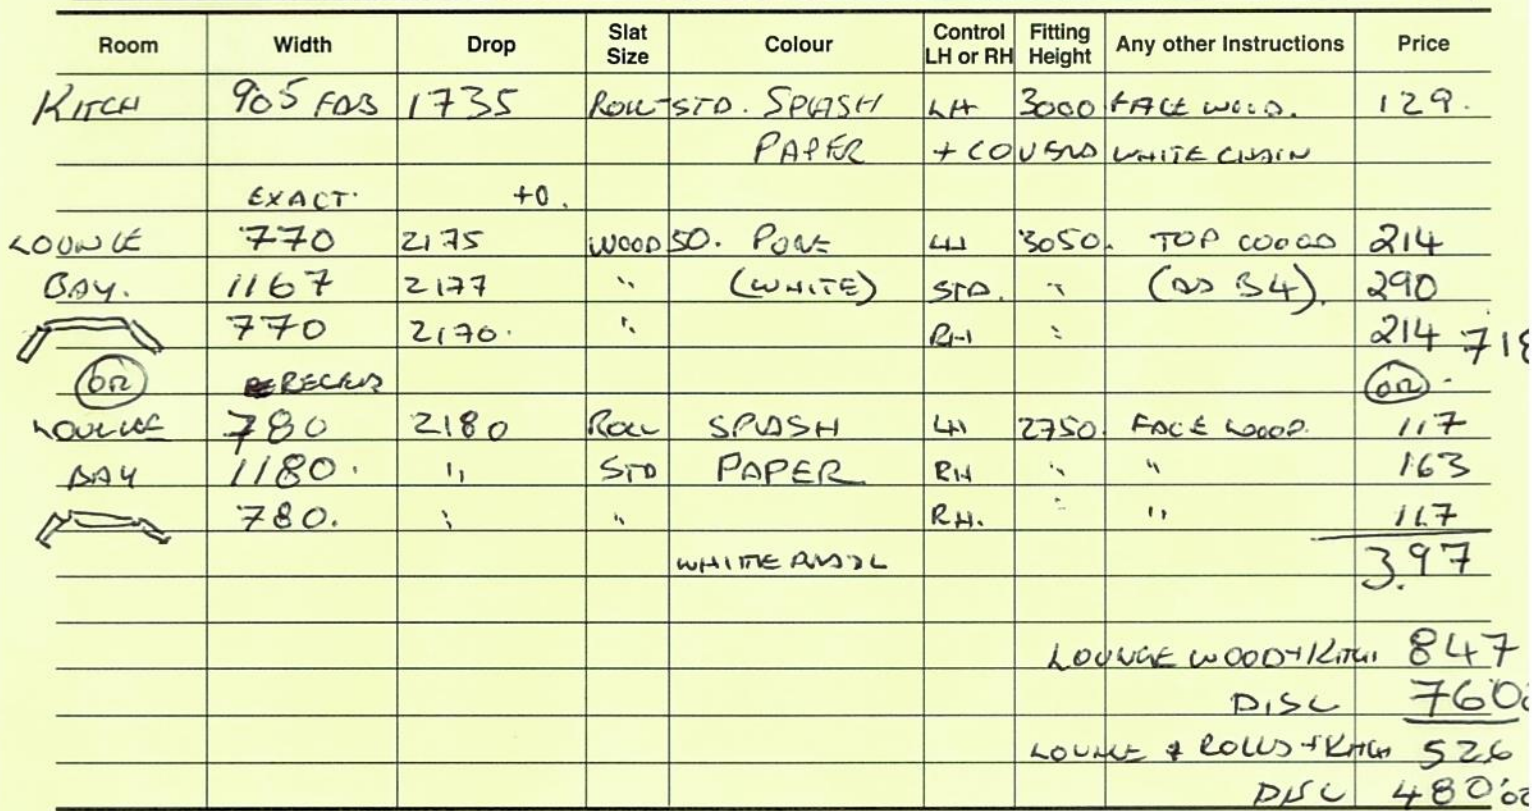 Room Width Drop Slat Size Colour Control LH or RH Fitting Height Any other Instructions Price
KITCH 905 FAB 1735 ROLL STD. SPLASH LH 3000 FACE WOOD. 129.
PAPER + COVERS WHITE CHAIN
EXACT. +0.
LOUNGE 770 2175 WOOD 50. LH 3050. TOP WOOD 214
BAY. 1167 2177 " (WHITE) STD. " (AS B4). 290
770 2170. " RH " 214 718
OR RECESS OR.
LOUNGE 780 2180 ROLL SPLASH LH 2750. FACE WOOD. 117
BAY 1180. " STD PAPER RH " " 163
780. " " RH. " " 117
WHITE 397
LOUNGE WOOD + KITCH 847
DISC 760
LOUNGE ROLLS + KITCH 526
DISC 480.00